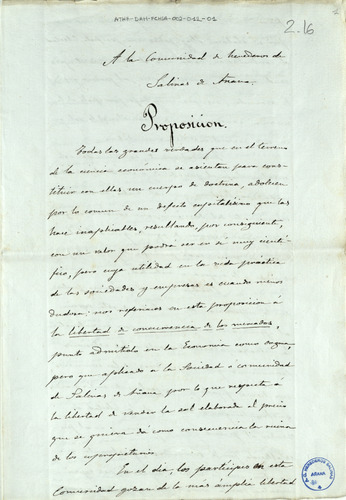 ATHA-DAH-FCHSA-012-012-01
2.16
A la Comunidad de herederos de
Salinas de Añana.
Proposicion.
Todas las grandes verdades que en el terreno
de la ciencia económica se asientan para cons-
tituir con ellas un cuerpo de doctrina, adolecen
por lo comun de un defecto capitalísimo que las
hace inaplicables, resultando, por consiguiente,
con un valor que podrá ser en sí muy cientí-
fico, pero cuya utilidad en la vida práctica
de las sociedades y empresas es cuando menos
dudosa: nos referimos en esta proposicion á
la libertad de concurrencia de los mercados,
punto admitido en la Economia como
pero que aplicado á la Sociedad o comunidad
de Salinas de Añana, por lo que respecta á
la libertad de vender la sal elaborada al precio
que se quiera dá como consecuencia la ruina
de los copropietarios.
En el dia, los partícipes en esta
Comunidad gozan de la más ámplia libertad
AÑANA